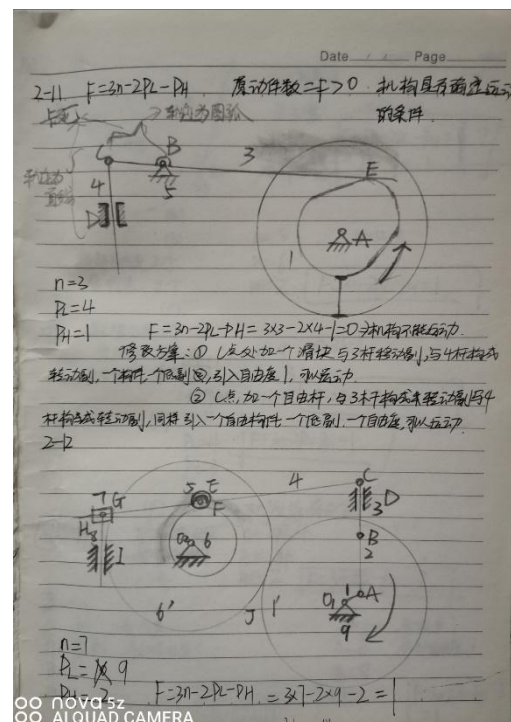 Date / / Page
2-11 F=3n-2PL-PH. 原动件数=F>0. 机构具有确定运动
的条件.
轨迹为圆弧
C B 3 E
4 5
D A
1
n=3
PL=4
PH=1 F=3n-2PL-PH=3×3-2×4-1=0⇒机构不能运动.
修改方案:① C点处加一个滑块与3杆移动副,与4杆构成
转动副,一个构件一个低副,引入自由度1,可以运动.
② C点,加一个自由杆,与3杆构成转动副与4
杆构成转动副,同样引入一个自由构件一个低副.一个自由度,可以运动.
2-12
7 G 5 E 4 C
F 3 D
H 8 6 B
I 2
6' J 1' O1 1 A
9
n=7
PL= 9
PH=2 F=3n-2PL-PH.=3×7-2×9-2=1
nova 5z
AI QUAD CAMERA